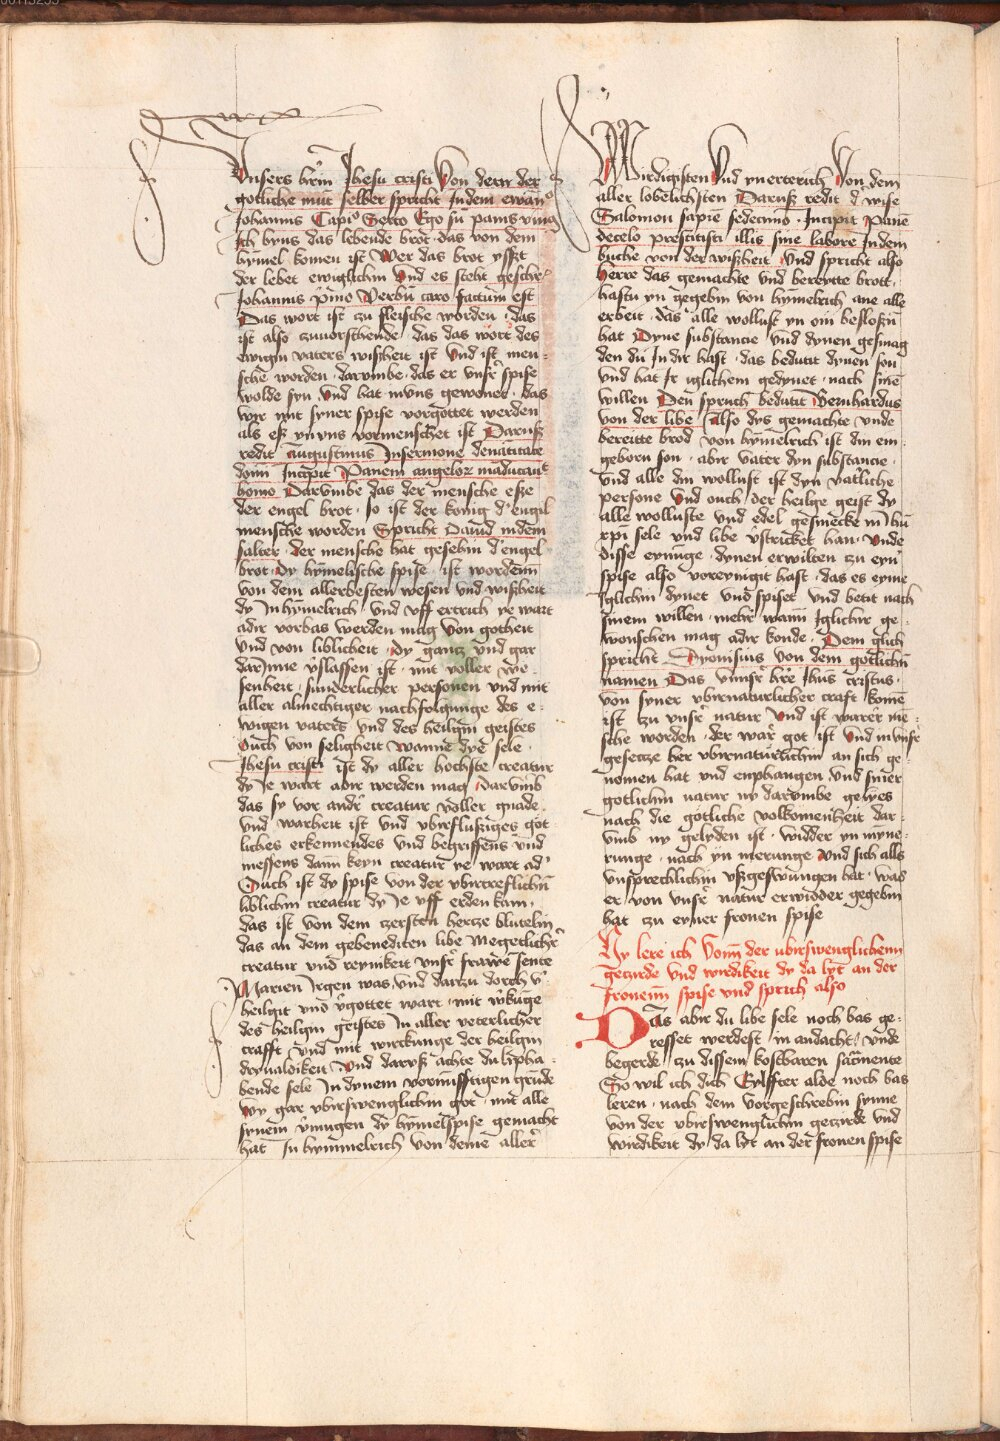 Vnsers hern Jhesu cristi Von dem der
gotliche mut selber spricht Jndem ewan
Johannis Capio Sexto Ego su panis viuus
Ich byns das lebende brot · das von dem
hymel komen ist Wer das brot ysszt
der lebet ewiglichin Vnd es steht geschr
Johannis primo Verbu caro factum est
Das wort ist zu fleische worden · das
ist also zuuorstehende das das wort des
ewigin vaters wißheit ist Vnd ist men
sche worden · darumbe das er vnsr spise
wolde syn Vnd hat inuns gewonet · das
wir mit syner spise vorgottet werden
als eß yn vns vormenschet ist Daruß
redit Augustinus Insermone denatiuitate
domi Incipit Panem angelor manducat
homo Darumbe das der mensche esße
der engel brot · so ist der konig d engil
mensche worden Spricht Dauid indem
salter · der mensche hat gesehin d engel
brot · Dy hymelische spise · ist worden
von dem allerbesten wesen vnd wißheit
dy In hymelrich vnd vff ertrich ye wart
adir vorbas werden mag Von gotheit
vnd von liblicheit · dy gantz vnd gar
darInne vslassen ist · mit voller we
senheit · sunderlicher personen vnd mit
aller almechtiger nachfolgunge des e
wigen vaters vnd des heilgin geistes
Ouch von seligheit wanne dye sele ·
Jhesu cristi ist dy aller hochste creatur
dy Ie wart adir werden mag Darumb
das sy vor andr creatur voller gnade
vnd warheit ist vnd vbirflußiges got
liches erkennendes vnd begriffens vnd
messens dann keyn creatur ye wart ad
Ouch ist dy spise von der vbirtreflichin
liblichin creatur dy Ie vff erden kam
das ist von dem zersten hertze blutelin
das an dem gebenediten libe Megetlichr
creatur vnd reynikeit vnsr frawe sente
Marien Irgen was vnd dartzu dorch v
heilgit vnd vgottet wart · mit wkuge
des heilgin geistes In aller veterlicher
crafft vnd mit wirckunge der heilgin
dryualdikeit Vnd daruß achte du lypha
bende sele In dynem vornunfftigen grude
Wy gar vbirswenglichin got · mit alle
synem vmugen dy hymelspise gemacht
hat In hymmelrich von deme aller
Wirdigisten Vnd ynertrich Von dem
aller lobelichsten Daruß redit d wise
Salomon sapie sedecimo · Incipit Pane
decelo prestitisti illis sine labore Indem
buche von der wißheit Vnd spricht also
Herre das gemachte vnd bereytte brott ·
hastu yn gegebin von hymelrich ane alle
erbeit · das alle wollust yn om besloßin
hat Dyne substancie vnd dynen gesmag
den du Indir hast · das bedutit dynen son
vnd hat Ir iglichem gedynet · nach sine
willen Den spruch bedutit Bernhardus
von der libe Also dys gemachte vnde
bereitte brod von hymelrich ist din ein
geborn son · abir vater dyn substancie ·
vnd alle din wollust ist dyn vatliche
persone Vnd ouch der heilge geist dy
alle wolluste vnd edel gesmecke in hu
xpi sele vnd libe vstricket han · Vnde
disse eynuge · dynen erwilten zu eyn
spise also voreynigit hast · das es eyme
Iglichin dynet vnd spiset vnd betit nach
sinem willen · mehr wann Iglichr ge
wonschen mag adir konde · Dem glich
spricht Dyonisius von dem gotlichin
namen Das vnnsr hre Jhus cristus ·
von syner vbirnaturlicher craft kome
ist zu vnsr natur Vnd ist warer me
sche worden · der war got ist Vnd invnsr
gesetze her vbirnaturlichin an sich ge
nomen hat vnd enphangen vnd siner
gotlichin natur ny darumbe gelyes
nach die gotliche volkomenheit dar
vmb ny gelyden ist · widder yn myne
runge · nach yn merunge Vnd sich alls
vnsprechlichin vßgeswungen hat · was
er von vnsr natur erwidder gegebin
hat zu eyner fronen spise
Hy lere ich Vonn der vbirswenglichenn
getzirde vnd wirdikeit dy da lyt an der
fronenn spise vnd sprich also
Das abir du libe sele noch bas ge
resset werdest · in andacht · vnde
begerde zu dissem kostbaren sacmente
So wil ich dich Eylffter alde noch bas
leren · nach dem vorgeschrebin synne
von der vbirswenglichin getzirde vnd
wirdikeit dy da lyt an der fronen spise